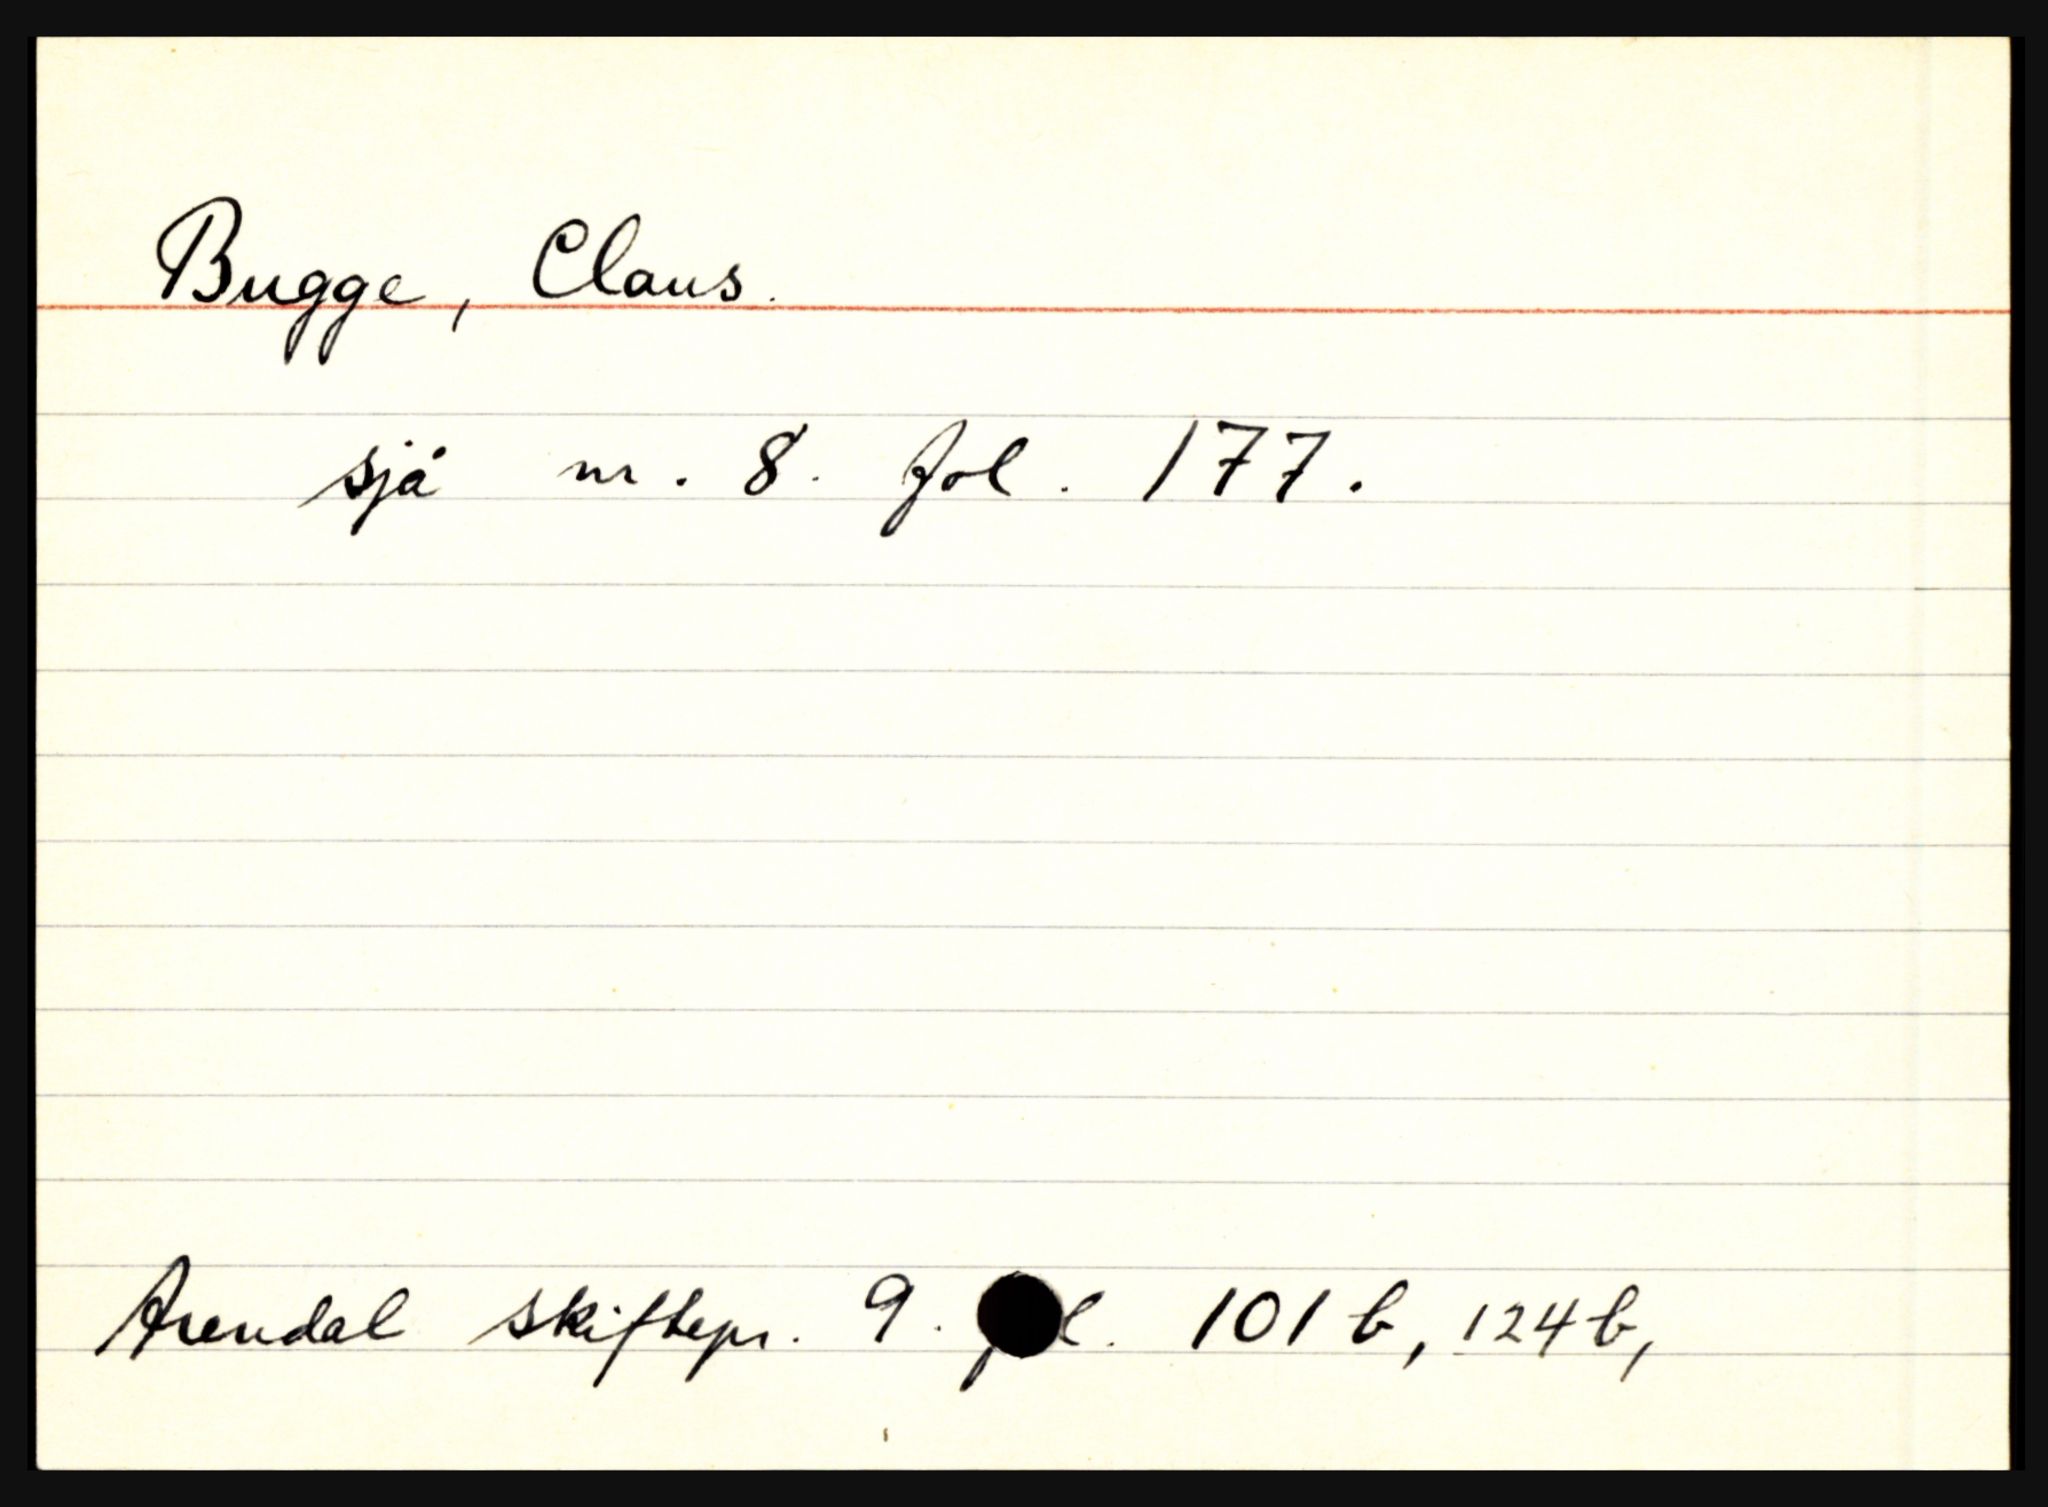 Bugge, Claus.
sjå nr. 8. fol. 177.
Arendal skiftepr. 9. 101 b, 124 b,